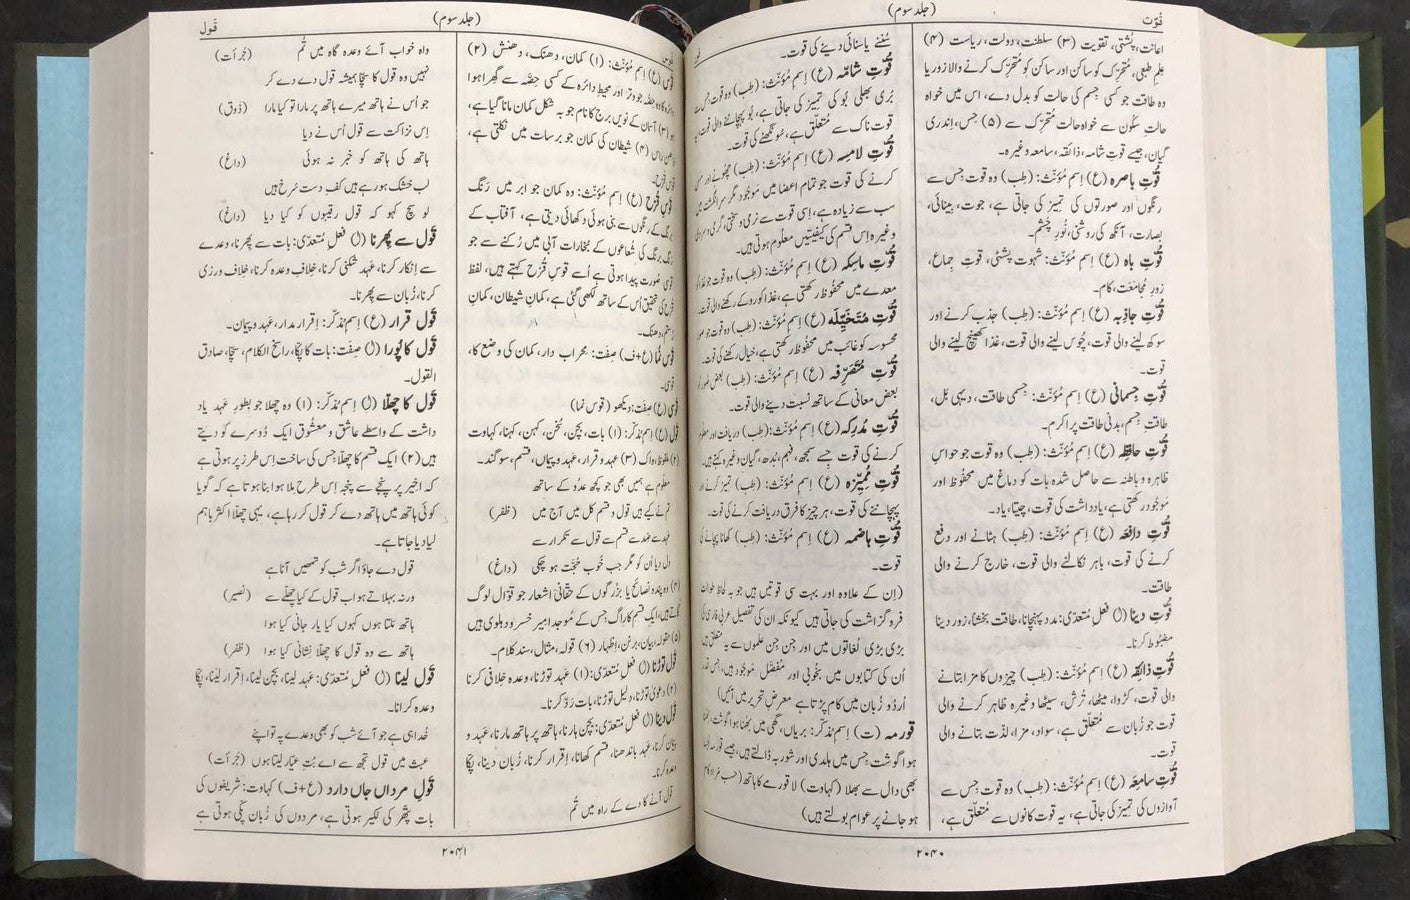 قُوّت
(جلد سوم)
اعانت، پُشتی، تقویت (۳) سلطنت، دولت، ریاست (۴)
علمِ طبعی، مُتحرّک کو ساکن اور ساکن کو مُتحرّک کرنے والا زور یا
وہ طاقت جو کسی جِسم کی حالت کو بدل دے، اس میں خواہ
حالتِ سکُون سے خواہ حالت متحرّک سے (۵) حِس، اِندری
گیان، جیسے قوتِ شامہ، ذائقہ، سامعہ وغیرہ۔
قُوّتِ باصرہ (ع) اِسمِ مُؤنّث: (طِب) وہ قوت جس سے
رنگوں اور صورتوں کی تمیز کی جاتی ہے، جوت، بینائی،
بصارت، آنکھ کی روشنی، نُورِ چشم۔
قُوّتِ باہ (ع) اِسمِ مُؤنّث: شہوت پُشتی، قوتِ جِماع،
زورِ مُجامَعَت، کام۔
قُوّتِ جاذِبہ (ع) اِسمِ مُؤنّث: (طِب) جذب کرنے اور
سوکھ لینے والی قوت، چُوس لینے والی قوت، غذا کھینچ لینے والی
قوت۔
قُوّتِ جِسمانی (ع) اِسمِ مُؤنّث: جِسمی طاقت، دیہی بل،
طاقتِ جِسم، بدنی طاقت پراکرم۔
قُوّتِ حافِظہ (ع) اِسمِ مُؤنّث: (طِب) وہ قوت جو حواسِ
ظاہرہ و باطنہ سے حاصل شدہ بات کو دماغ میں محفُوظ اور
موجُود رکھتی ہے، یادداشت کی قوت، چیتا، یاد۔
قُوّتِ دافِعہ (ع) اِسمِ مُؤنّث: (طِب) ہٹانے اور دفع
کرنے کی قوت، باہر نکالنے والی قوت، خارج کرنے والی
طاقت۔
قُوّت دینا (ا) فعلِ مُتعدّی: مدد پہنچانا، طاقت بخشنا، زور دینا
مضبُوط کرنا۔
قُوّتِ ذائقہ (ع) اِسمِ مُؤنّث: (طِب) چیزوں کا مزا بتانے
والی قوت، کڑوا، میٹھا، تُرش، سیٹھا وغیرہ ظاہر کرنے والی
قوت جو زُبان سے مُتعلّق ہے، سواد، مزا، لذّت بتانے والی
قوت۔
قُوّتِ سامِعہ (ع) اِسمِ مُؤنّث: (طِب) وہ قوت جِس سے
آوازوں کی تمیز کی جاتی ہے، یہ قوت کانوں سے مُتعلّق ہے،
سُننے یا سنائی دینے کی قوت۔
قُوّتِ شامّہ (ع) اِسمِ مُؤنّث: (طِب) وہ قوت جس سے
بُری بھلی بُو کی تمیز کی جاتی ہے، بُو پہچاننے والی قوت
قوت ناک سے مُتعلّق ہے، سُونگھنے کی قوت۔
قُوّتِ لامِسہ (ع) اِسمِ مُؤنّث: (طِب) چھُونے اور
کرنے کی قوت جو تمام اعضا میں موجُود مگر سر انگشت
سب سے زیادہ ہے، اِسی قوت سے نرمی و سختی، گرمی و سردی
وغیرہ اِس قسم کی کیفیتیں معلُوم ہوتی ہیں۔
قُوّتِ ماسِکہ (ع) اِسمِ مُؤنّث: (طِب) وہ قوت جو غذا
معدے میں محفُوظ رکھتی ہے، غذا کو روکے رکھنے والی قوت۔
قُوّتِ مُتخیّلہ (ع) اِسمِ مُؤنّث: (طِب) وہ قوت جو
محسوسہ کو غائب میں محفُوظ رکھتی ہے، خیال رکھنے کی قوت۔
قُوّتِ مُتصَرِّفہ (ع) اِسمِ مُؤنّث: (طِب) بعض
بعض معانی کے ساتھ نسبت دینے والی قوت۔
قُوّتِ مُدرِکہ (ع) اِسمِ مُؤنّث: (طِب) دریافت اور
کرنے کی قوت جِسے سمجھ، فہم، بُدھ، گیان وغیرہ کہتے ہیں۔
قُوّتِ مُمیّزہ (ع) اِسمِ مُؤنّث: (طِب) تمیز کرنے اور
پہچاننے کی قوت، ہر چیز کا فرق دریافت کرنے کی قوت۔
قُوّتِ ہاضمہ (ع) اِسمِ مُؤنّث: (طِب) کھانا پچانے کی
قوت۔
(اِن کے علاوہ اور بہت سی قوتیں ہیں جو بہ لحاظ طوالت
فروگزاشت کی جاتی ہیں کیونکہ ان کی تفصیل عربی فارسی کی
بڑی بڑی لُغاتوں میں اور جِن جِن علموں سے یہ مُتعلّق ہیں
اُن کی کتابوں میں بخُوبی اور مُفصّل موجُود ہیں، جس قدر
اُردُو زُبان میں کام پڑتا ہے معرضِ تحریر میں آئیں)
قورمہ (ت) اِسمِ مُذکّر: بریاں، گھی میں بھُنا ہوا گوشت، بھُنا
ہوا گوشت جِس میں ہلدی اور شوربہ نہ ڈالتے ہیں، جیسے قورمہ
بھی دال سے بھلا (کہاوت) لا قورمے کا ہاتھ (حسب مُراد کام
ہو جانے پر عوام بولتے ہیں)
۲۰۴۰
(جلد سوم)
قَول
قوس (ع) اِسمِ مُؤنّث: (۱) کمان، دھنک، دھنش (۲)
دائرہ کا وہ حِصّہ جو وتر اور محیطِ دائرہ کے کسی حِصّہ سے گھِرا ہوا
ہو (۳) آسمان کے نویں برج کا نام جو بہ شکل کمان مانا گیا ہے،
(۴) شیطان کی کمان جو برسات میں نکلتی ہے،
قوس قزح۔
قوسِ قُزح (ع) اِسمِ مُؤنّث: وہ کمان جو ابر میں رنگ
برنگ کے رنگوں سے بنی ہوئی دکھائی دیتی ہے، آفتاب کے
رنگ برنگ کی شُعاعوں کے بخارات آبی میں رُکنے سے جو
قوسی صورت پیدا ہوتی ہے اُسے قوسِ قُزح کہتے ہیں، لفظ
قزح کی تحقیق اُس کے ساتھ لکھی گئی ہے، کمانِ شیطان، کمانِ
رستم، دھنک۔
قوس نُما (ع+ف) صِفت: محراب دار، کمان کی وضع کا،
قوسی۔
قوسی (ع) صِفت: دیکھو (قوس نُما)
قول (ع) اِسمِ مُذکّر: (۱) بات، بچن، سُخن، کہن، کہنا، کہاوت
(۲) ملفوظ، واک (۳) عہد و قرار، عہد و پیماں، قسم، سوگند۔
معلوم ہے ہمیں بھی جو کچھ عدُو کے ساتھ
تم نے کیے ہیں قول و قسم کل میں آج میں (ظفر)
عہد سے، وعدے سے قسم سے قول سے تکرار سے
دل دیا اُن کو مگر جب خُوب حُجّت ہو چکی (داغ)
(۴) وہ پند و نصائح یا بزُرگوں کے حقّانی اشعار جو قوّال لوگ
گاتے ہیں، ایک قِسم کا راگ جِس کے مُوجد امیر خسرو دہلوی ہیں
(۵) مقولہ، بیان، برنن، اظہار (۶) قولہ، مثال، سند کلام۔
قول توڑنا (ا) فعلِ مُتعدّی: (۱) عہد توڑنا، وعدہ خلافی کرنا
(۲) دعویٰ توڑنا، دلیل توڑنا، بات رَدّ کرنا۔
قول دینا (ا) فعلِ مُتعدّی: بچن ہارنا، ہاتھ پر ہاتھ مارنا، عہد و
پیمان کرنا، عہد باندھنا، قسم کھانا، اِقرار کرنا، زُبان دینا، پکّا
وعدہ کرنا۔
قول آنے کا دے کے راہ میں تُم
واہ خواب آئے وعدہ گاہ میں تُم (جرأت)
نہیں وہ قول کا سچّا ہمیشہ قول دے دے کر
جو اُس نے ہاتھ میرے ہاتھ پر مارا تو کیا مارا (ذوق)
اِس نزاکت سے قول اُس نے دیا
ہاتھ کی ہاتھ کو خبر نہ ہوئی (داغ)
لب خشک ہو رہے ہیں کفِ دست سُرخ ہیں
لو سچ کہو کہ قول رقیبوں کو کیا دیا (داغ)
قَول سے پھِرنا (ا) فعلِ مُتعدّی: بات سے پھِرنا، وعدے
سے اِنکار کرنا، عہد شکنی کرنا، خلافِ وعدہ کرنا، خلاف ورزی
کرنا، زُبان سے پھِرنا۔
قَول قرار (ع) اِسمِ مُذکّر: اِقرار مدار، عہد و پیمان۔
قَول کا پُورا (ا) صِفت: بات کا پکّا، راسخ الکلام، سچّا، صادق
القول۔
قَول کا چھلّا (ا) اِسمِ مُذکّر: (۱) وہ چھلّا جو بطورِ عہد یاد
داشت کے واسطے عاشِق و معشُوق ایک دُوسرے کو دیتے
ہیں (۲) ایک قسم کا چھلّا جِس کی ساخت اِس طرز پر ہوتی ہے
کہ اخیر پر پنجے سے پنجہ اِس طرح مِلا ہوا بنا ہوتا ہے کہ گویا
کوئی ہاتھ میں ہاتھ دے کر قول کر رہا ہے، یہی چھلّا اکثر باہم
لیا دیا جاتا ہے۔
قول دے جاؤ اگر شب کو تمھیں آنا ہے
ورنہ بہلاتے ہو اب قول کے کیا چھلّے سے (نصیر)
ہاتھ ملتا ہوں کہوں کیا یار جانی کیا ہوا
ہاتھ سے وہ قول کا چھلّا نشانی کیا ہوا (ظفر)
قَول لینا (ا) فعلِ مُتعدّی: عہد لینا، بچن لینا، اِقرار لینا، پکّا
وعدہ کرانا۔
خُدا ہی ہے جو آئے شب کو بھی وعدے پہ تو اپنے
عبث میں قول تجھ سے اے بُتِ عیّار لیتا ہوں (جُرأت)
قَولِ مرداں جاں دارد (ع+ف) کہاوت: شریفوں کی
بات پتّھر کی لکیر ہوتی ہے، مردوں کی زُبان پکّی ہوتی ہے
۲۰۴۱